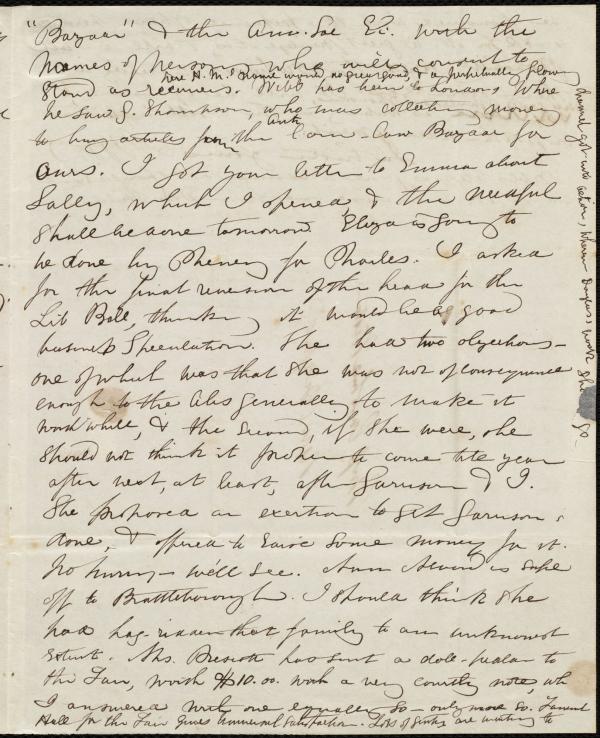 "Bazaar" & the Am. Soc Ex. with the
names of persons, who will consent to
stand as receivers. Webb has been to London, where
here H. M. no great good, & a perpetually flowing
he saw G. Thompson, who was collecting money
to buy articles from the Anti Corn-Law Bazaar for
ours. I got your letter to Emma about
Sally, which I opened, & the needful
shall be done tomorrow. Eliza is going to
be done by Pheney for Charles. I asked
for the final reversion of the head for the
Lib Bell, thinking it would be a good
business speculation. She had two objections –
one of which was that she was not of consequence
enough to the Abs generally to make it
worth while, & the second, if she were, she
should not think it proper to come till year
after next, at least, after Garrison & I.
She proposed an exertion to get Garrison
done, & offered to raise some money for it.
No hurry – we'll see. Ann is safe
off to Brattleborough. I should think she
had hag-ridden that family to an unknown
extent. Mrs. Prescott has sent a doll-pedlar to
the Fair, worth $10.00. with a very courtly note, wh
I answered with one equally so – only more so. Faneuil
Hall for the Fair gives universal satisfaction. Lots of are writing to
got into action, where Douglass, work she go